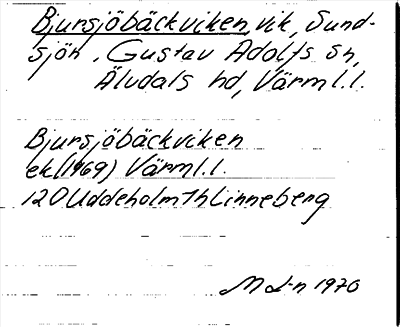 Bjursjöbäckviken, vik, Sund-
sjön, Gustav Adolfs sn,
Älvdals hd, Värml.l.
Bjursjöbäckviken
ek(1969) Värml.l.
12D Uddeholm 7h Linneberg
M L-n 1970